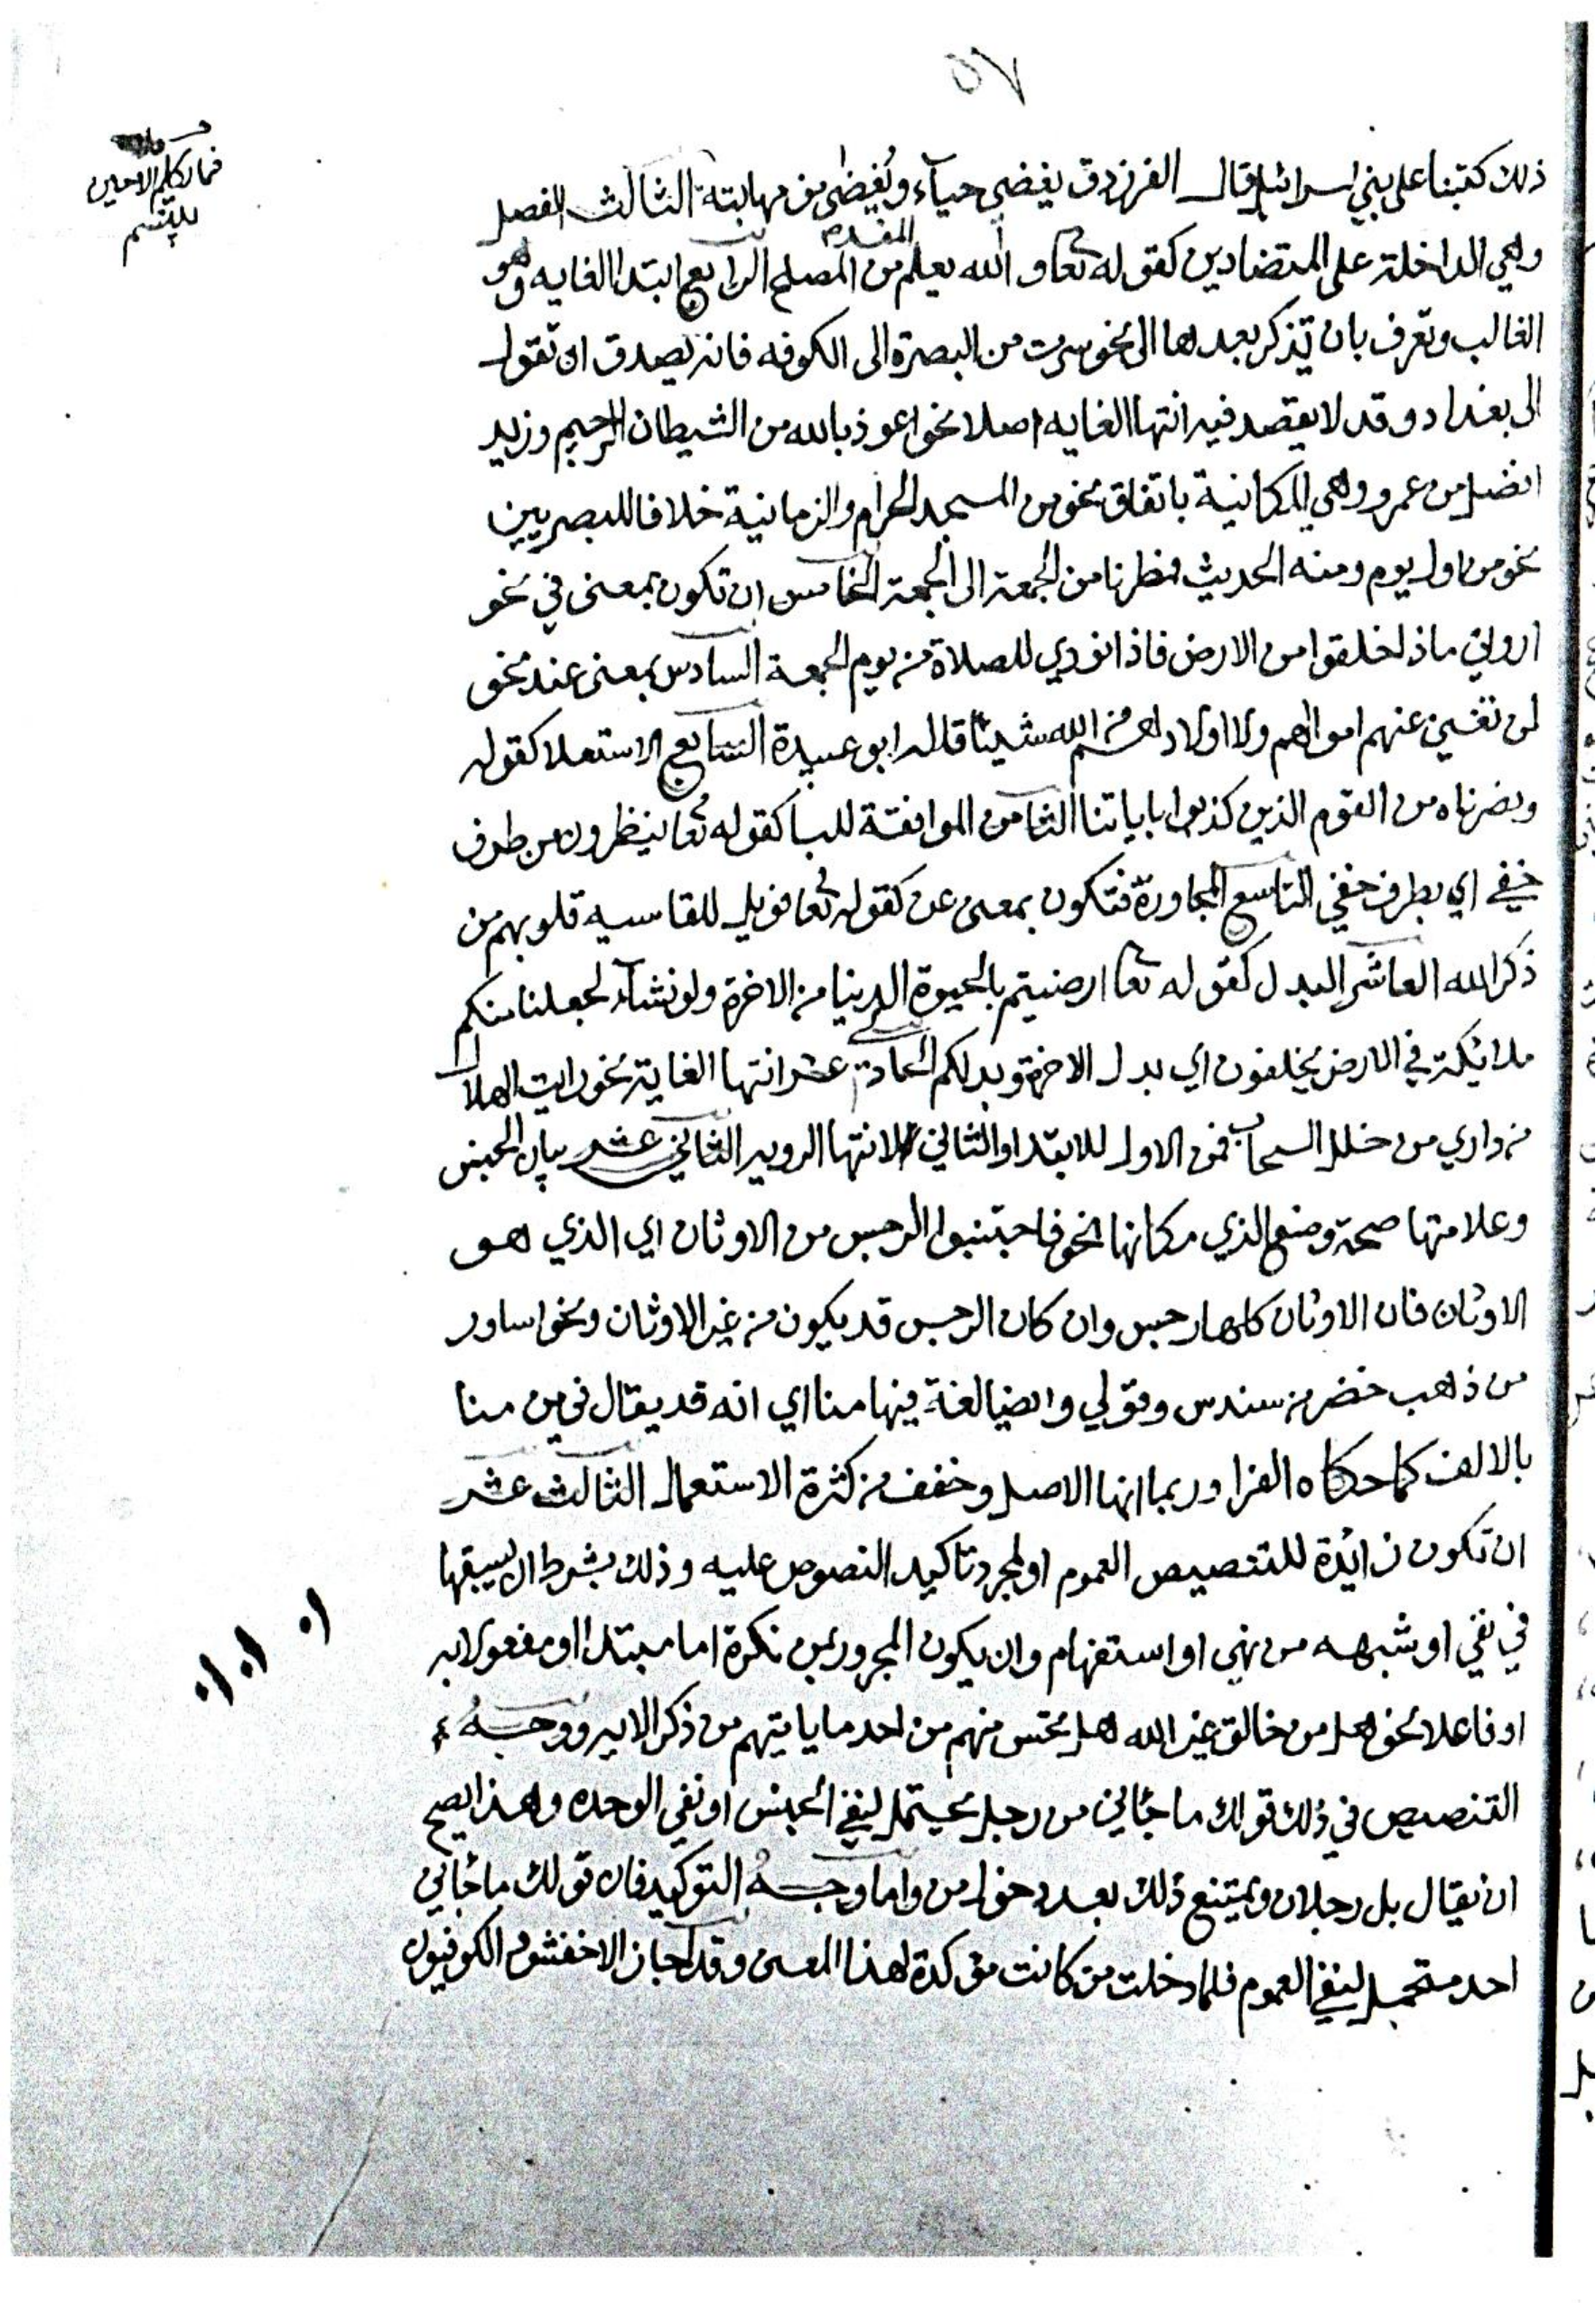 ٥٧
ذلك كتبنا على بني اسرائيل قال الفرزدق يغضي حياء ويُغضى من مهابته الثالث الفصل
وهي الداخلة على المتضادين كقوله تعا والله يعلم المفسد من المصلح الرابع ابتدا الغايه وهو
الغالب وتعرف بان تذكر بعدها الى نحو سرت من البصرة الى الكوفه فانه يصدق ان تقول
الى بغداد وقد لا يقصد فيه انتها الغايه اصلا نحو اعوذ بالله من الشيطان الرجيم وزيد
افضل من عمرو وهي المكانية باتفاق نحو من المسجد الحرام والزمانية خلافا للبصريين
نحو من اول يوم ومنه الحديث فمطرنا من الجمعة الى الجمعة الخامس ان تكون بمعنى في نحو
اروني ماذا خلقوا من الارض فاذا نودي للصلاة من يوم الجمعة السادس بمعنى عند نحو
لن تغني عنهم اموالهم ولا اولادهم من الله شيئا قاله ابو عبيدة السابع الاستعلا كقوله
ونصرناه من القوم الذين كذبوا باياتنا الثامن الموافقة للبا كقوله تعا ينظرون من طرف
خفي اي بطرف خفي التاسع المجاورة فتكون بمعنى عن كقوله تعا فويل للقاسيه قلوبهم من
ذكر الله العاشر البدل كقوله تعا ارضيتم بالحيوة الدنيا من الاخرة ولو نشآء لجعلنا منكم
ملائكة في الارض يخلفون اي بدل الاخرة وبدلكم الحادي عشر انتها الغاية نحو رايت الهلال
من داري من خلل السحاب فمن الاول للابتدا والثاني لانتها الرويه الثاني عشر بيان الجنس
وعلامتها صحة وضع الذي مكانها نحو فاجتنبوا الرجس من الاوثان اي الذي هو
الاوثان فان الاوثان كلها رجس وان كان الرجس قد يكون من غير الاوثان ونحو اساور
من ذهب خضر من سندس وقولي وايضا لغة فيها منا اي انه قد يقال في من منا
بالالف كما حكاه الفرا وربما انها الاصل وخفف من كثرة الاستعمال الثالث عشر
ان تكون زائدة للتنصيص العموم او لمجرد تاكيد النصوص عليه وذلك بشرط ان يسبقها
في نفي او شبهه من نهي او استفهام وان يكون المجرور بمن نكرة اما مبتدا او مفعولا به
او فاعلا نحو هل من خالق غير الله هل تحس منهم من احد ما ياتيهم من ذكر الايه ووجه
التنصيص في ذلك قولك ما جاني من رجل يحتمل لنفي الجنس او نفي الوحده ولهذا يصح
ان يقال بل رجلان ويمتنع ذلك بعد دخول من واما وجه التوكيد فان قولك ما جاني
احد مستحمل لنفي العموم فلما دخلت من كانت مؤكدة لهذا المعنى وقد اجاز الاخفش والكوفيون